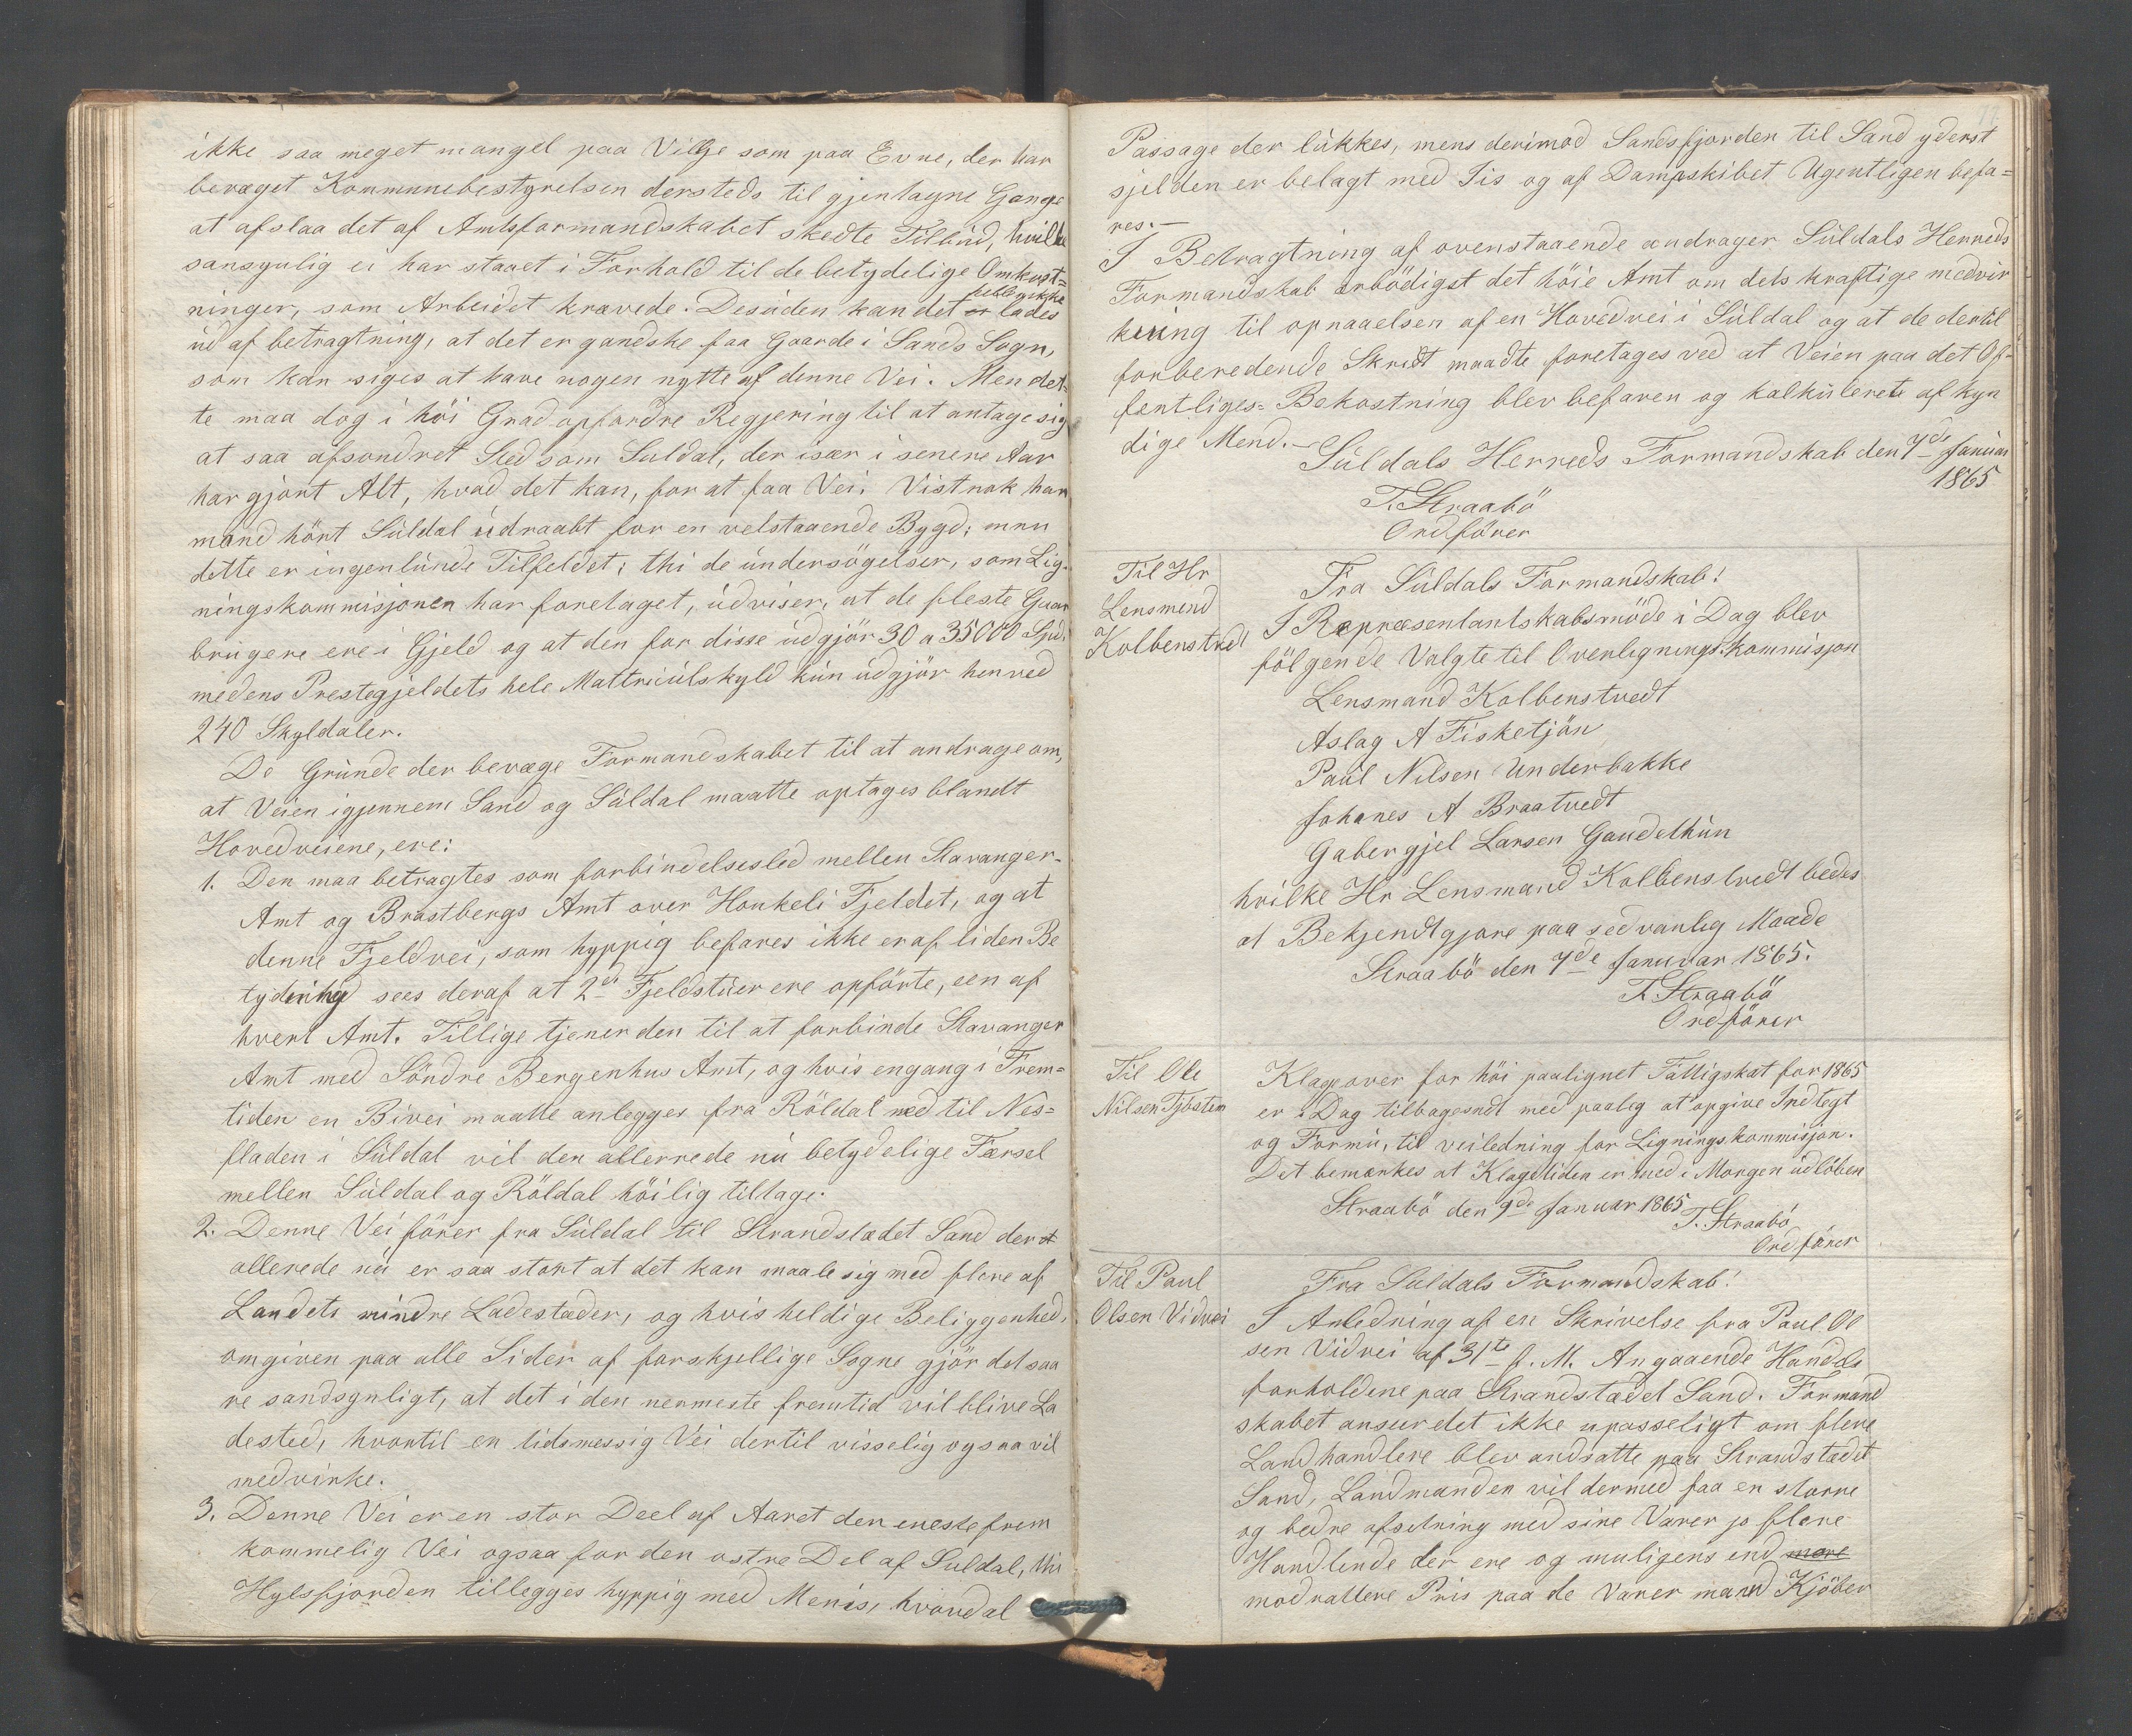 ikke saa meget mangel paa Vilge som paa Evne, der har
bevæget Kommunebestyrelsen dersteds til gjentagne Gange
at afslaa det af Amtsformandskabet skedte Tilbud, hvilke
sansynlig ei har staaet i Forhold til de betydelige Omkost=
ninger, som Arbeidet krævede. Desuden kan det heller ikke lades
ud af betragtning, at det er gandske faa Gaarde i Sands Sogn,
som kan siges at have nogen nytte af denne Vei. Men det-
te maa dog i höi Grad opfordre Regjering til at antage sig
at saa afsondret Sted som Suldal, der især i senere Aar
har gjort Alt, hvad det kan, for at faa Vei. Vistnok har
mand hört Suldal udraabt for en velstaaende Bygd; men
dette er ingenlunde Tilfeldet; thi de undersögelser, som Lig-
ningskommisjonen har foretaget, udviser, at de fleste Gaar
brugere ere i Gjeld og at den for disse udgjör 30 a 35000 Spd.
medens Prestegjeldets hele Mattriculskyld kun udgjör henved
240 Skyldaler.
De Grunde der bevæge Formandskabet til at andrage om,
at Veien igjennem Sand og Suldal maatte optages blandt
Hovedveiene, ere:
1. Den maa betragtes som forbindelsesled mellen Stavanger-
Amt og Bratsbergs Amt over Houkeli Fjeldet, og at
denne Fjeldvei, som hyppig befares ikke er af liden Be
tydning sees deraf at 2de Fjeldstuer ere opförte, een af
hvert Amt. Tillige tjener den til at forbinde Stavanger
Amt med Söndre Bergenhus Amt, og hvis engang i Frem=
tiden en Bivei maatte anlegges fra Röldal ned til Nes=
fladen i Suldal vil den allerrede nu betydelige Færsel
mellen Suldal og Röldal höilig tiltage.
2. Denne Vei förer fra Suldal til Strandstædet Sand der
allerede nu er saa stort at det kan maale sig med flere af
Landets mindre Ladestæder, og hvis heldige Beliggenhed,
omgiven paa alle Sider af forskjellige Sogne gjör det saa
re sandsynligt, at det i den nermeste fremtid vil blive La
dested, hvortil en tidsmessig Vei dertil visselig ogsaa vil
medvirke.
3. Denne Vei er en stor Deel af Aaret den eneste frem
kommelig Vei ogsaa for den østre Del af Suldal, thi
Hylsfjorden tillegges hyppig med Menis, hvorved al
Passage der lukkes, mens derimod Sandsfjorden til Sand yderst
sjelden er belagt med Iis og af Dampskibet Ugentligen befa=
res.—
I Betragtning af ovenstaaende andrager Suldals Herreds
Formandskab ærbödigst det höie Amt om dets kraftige medvir
kning til opnaaelsen af en Hovedvei i Suldal og at de dertil
forberedende Skridt maadte foretages ved at Veien paa det Of-
fentliges= Bekostning blev befaren og kalkulerete af kyn
dige Mend.—
Suldals Herreds Formandskab den 7de Januar
1865
T. Straabö
Ordförer
Til Hr
Lensmend
Kolbenstvedt
Fra Suldals Formandskab!
I Repræsentantskabsmöde i Dag blev
fölgende Valgte til Overlignings.kommisjon
Lensmand Kolbenstvedt
Aslag A Fisketjön
Paul Nilsen Underbakke
Johanes A Braatvedt
Gabergjel Larsen Gaudethun
hvilke Hr Lensmand Kolbenstvedt bedes
at Bekjendtgjøre paa sedvanlig Maade
Straabö den 7de Januar 1865.
T. Straabö
Ordförer
Til Ole
Nilsen Tjösten
Klage over for höi paalignet Fattigskat for 1865
er i Dag tilbagesndt med paaleg at opgive Indtegt
og Formu, til veiledning for Ligningskommisjon.
Det bemærkes at Klagetiden er med i Morgen udlöben
Straabö den 9de Januar 1865
T. Straabö
Ordförer
Til Paul
Olsen Vidvei
Fra Suldals Formandskab!
I Anledning af en Skrivelse fra Paul Ol
sen Vidvei af 31te f. M. Angaaende Handels
forholdene paa Strandstædet Sand. Formand
skabet anser det ikke upasseligt om flere
Landhandlere blev andsatte paa Strandstædet
Sand, Landmanden vil dermed faa en større
og bedre afsetning med sine Varer jo flere
Handlende der ere og muligens end mere
modrattere Pris paa de Varer mand Kjöber